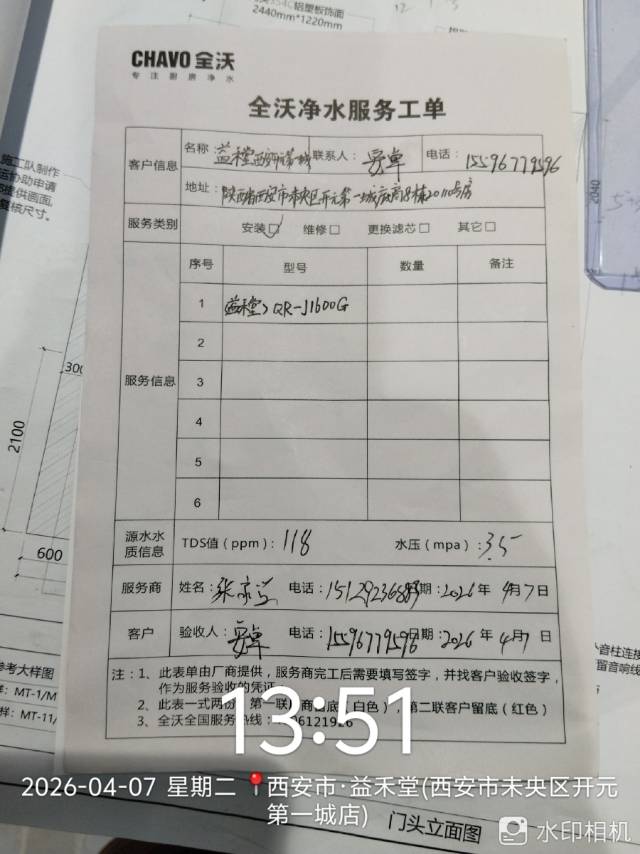 354C铝塑板饰面
2440mm*1220mm
CHAVO 全沃
专注厨房净水
全沃净水服务工单
客户信息 名称 益禾堂西开元第一城 联系人: 电话: 15596779596
地址: 陕西省西安市未央区开元第一城
服务类别 安装☑ 维修□ 更换滤芯□ 其它□
服务信息 序号 型号 数量 备注
1 益禾堂 QR-J1600G
2
3
4
5
6
源水水质信息 TDS值(ppm): 118 水压(mpa): 3.5
服务商 姓名: 电话: 期: 2026年4月7日
客户 验收人: 电话: 15596779596 日期: 2026年4月7日
注: 1、此表单由厂商提供,服务商完工后需要填写签字,并找客户验收签字,
作为服务验收的凭证
2、此表一式两份,第一联 商 底(白色),第二联客户留底(红色)
3、全沃全国服务热线:
施工队制作
协助申请
提供画面,
复核尺寸。
300
2100
600
2040
参考大样图
样: MT-1/M
样: MT-11/
小音柱连接
留音响线
13:51
2026-04-07 星期二 西安市·益禾堂(西安市未央区开元
第一城店)
门头立面图
水印相机